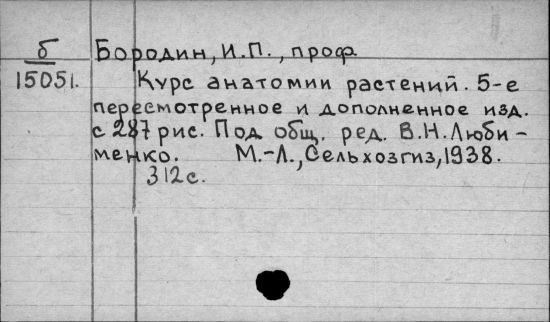 б Бородин, И.П., проф.
15051. Курс анатомии растений. 5-е
пересмотренное и дополненное изд.
с 287 рис. Под общ. ред. В.Н.Люби-
менко. М.-Л., Сельхозгиз, 1938.
312с.